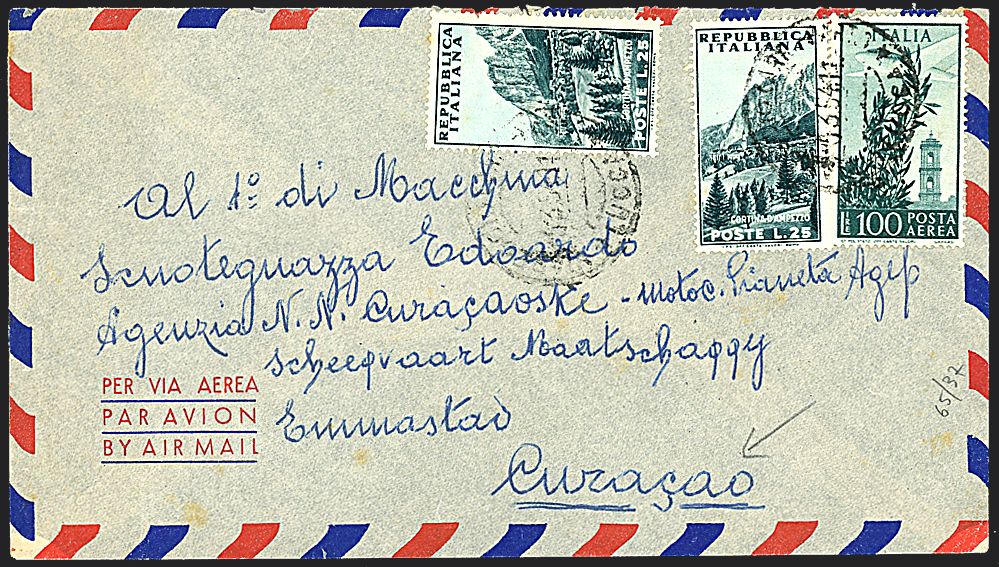 REPUBBLICA
ITALIANA
CORTINA D'AMPEZZO
POSTE L.25
REPUBBLICA
ITALIANA
CORTINA D'AMPEZZO
POSTE L.25
ITALIA
LIRE 100 POSTA
AEREA
Al 1º di Macchina
Scuoteguazza Edoardo
Agenzia N.N. Curaçaoske - Motoc. Pianeta Agip
Scheepvaart Maatschappy
PER VIA AEREA
PAR AVION
BY AIR MAIL
Emmastad
Curaçao
65/37